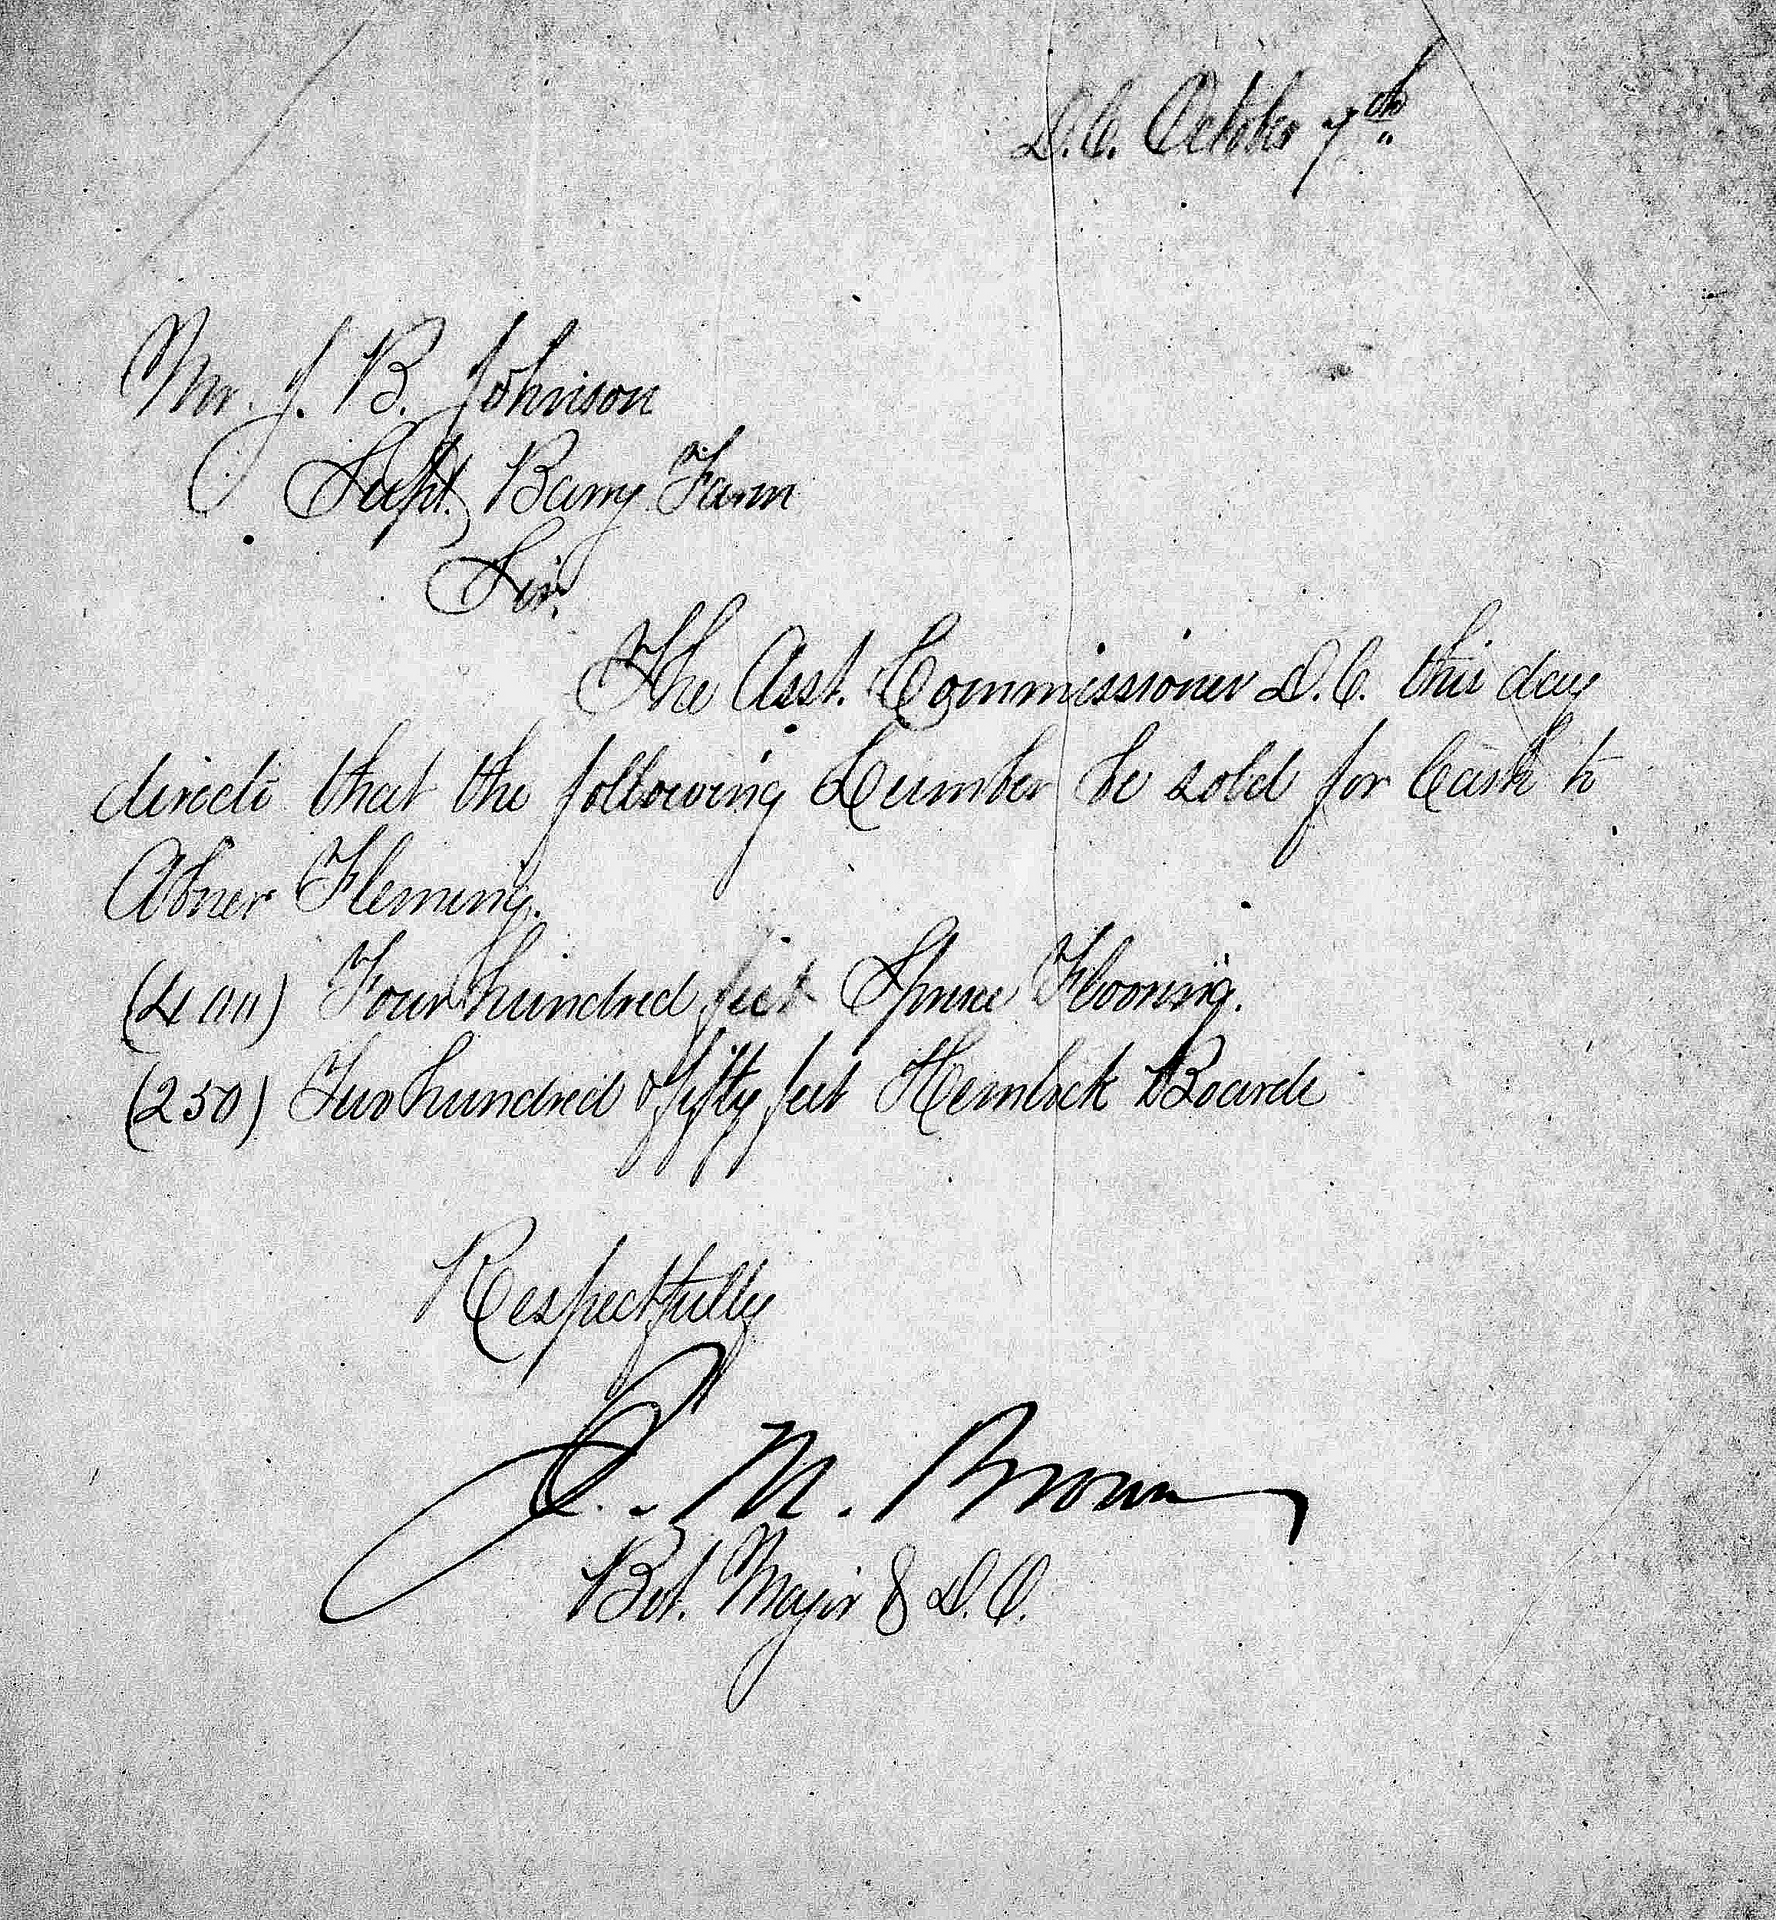 D.C. October 7th
Mr. J. B. Johnson
Supt. Barry Farm
Sir.
The Asst. Commissioner D.C. this day
directs that the following Lumber be sold for Cash to
Abner Fleming.
(400) Four hundred feet Spruce Flooring.
(250) Two hundred & fifty feet Hemlock Boards
Respectfully
S. M. Brown
Bvt. Major & D.O.